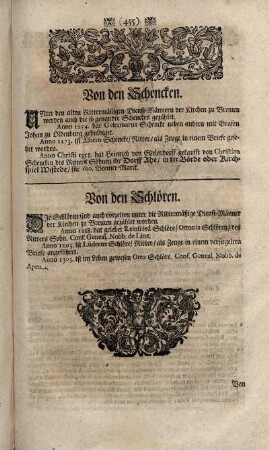 (455)
Von den Schencken.
Unter den alten Rittermäßigen Dienst-Männern der Kirchen zu Bremen
werden auch die so genandte Schencken gezählet.
Anno 1274. hat Gelenarius Schencke neben andern mit Grafen
Johan zu Oldenburg gehuldiget.
Anno 1273. ist Alvern Schencke Ritter als Zeuge in einem Briefe gese-
het worden.
Anno Christi 1351. hat Heinrich von gekaufft von Christian
Schencken des Ritters Söhnen die Dorff Ahe, in der Börde oder Kirch-
spiel Wistede, für 100. Bremer Marck.
Von den Schlören.
Die Schlören sind auch vorzeiten unter die Rittermäßige Dienst-Männer
der Kirchen zu Bremen gezählet worden.
Anno 1288. hat gelebet Reinbold Schlöre, Gerodis Schlören, des
Ritters Sohn. Conf. Geneal. Nobb. de Line.
Anno 1295. ist Luderus Schlöre Ritter, als Zeuge in einem versiegelten
Briefe angeführet.
Anno 1303. ist im Leben gewesen Otto Schlöre. Conf. Geneal. Nobb. de
Apen.
Von